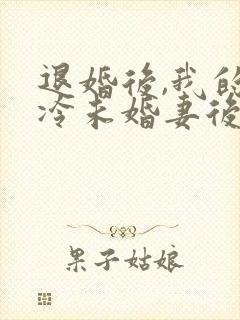 退婚後,我的
冷未婚妻後
果子姑娘